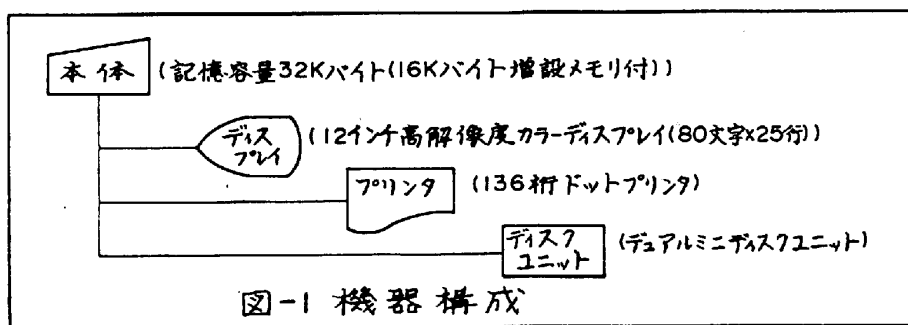 本体 (記憶容量32Kバイト(16Kバイト増設メモリ付))
ディス
プレイ
(12インチ高解像度カラーディスプレイ(80文字x25行))
プリンタ (136桁ドットプリンタ)
ディスク
ユニット
(デュアルミニディスクユニット)
図-1 機器構成